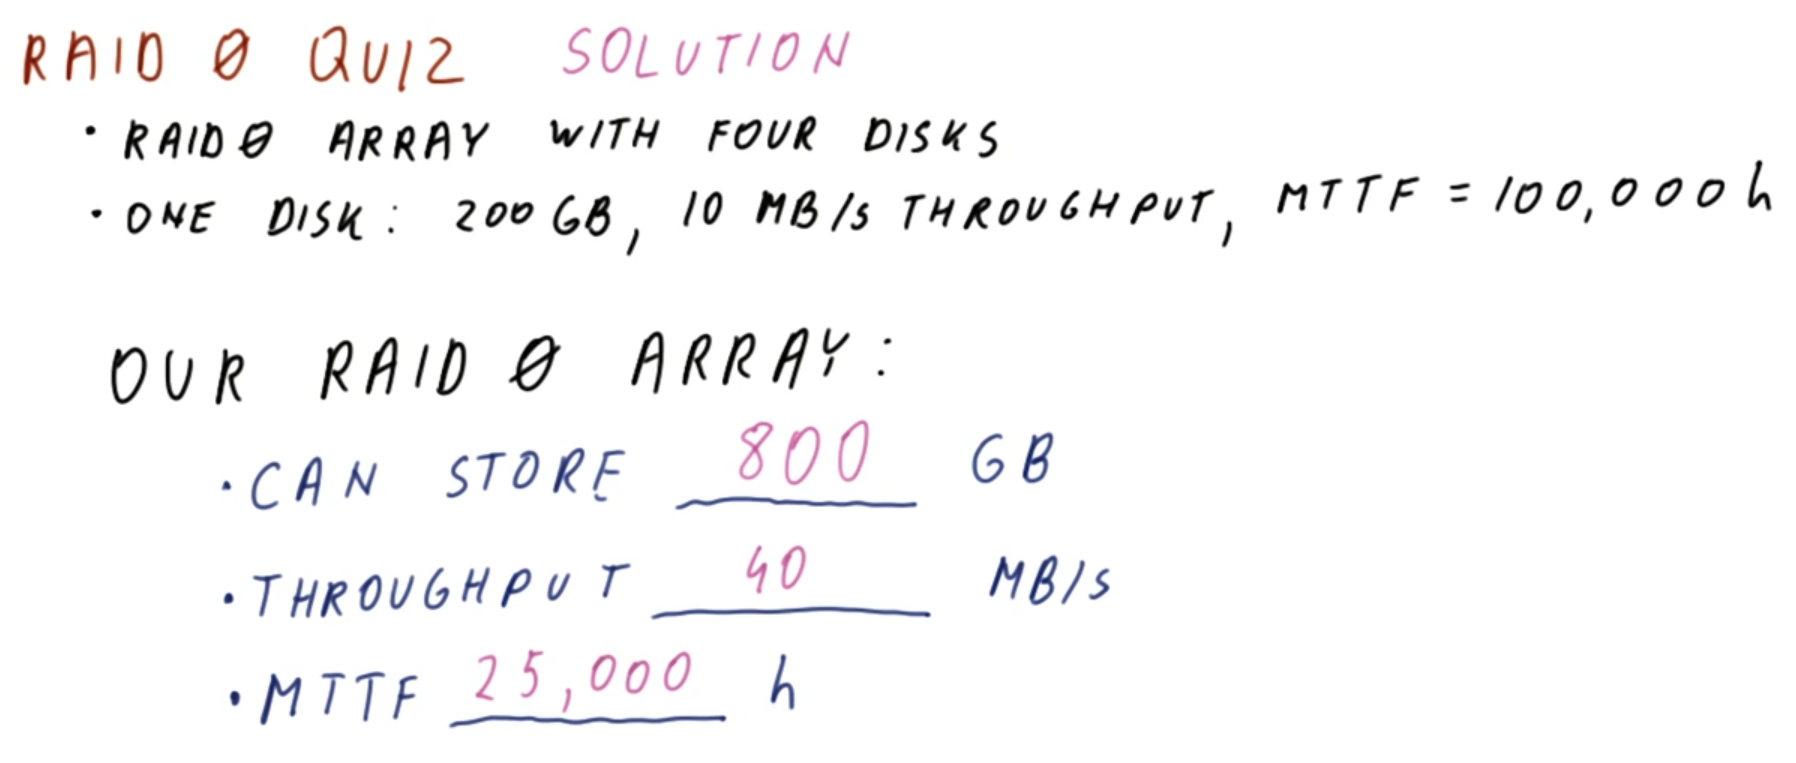 RAID 0 QUIZ SOLUTION
· RAID0 ARRAY WITH FOUR DISKS
· ONE DISK: 200 GB, 10 MB/s THROUGHPUT, MTTF = 100,000 h
OUR RAID 0 ARRAY:
· CAN STORE 800 GB
· THROUGHPUT 40 MB/s
· MTTF 25,000 h